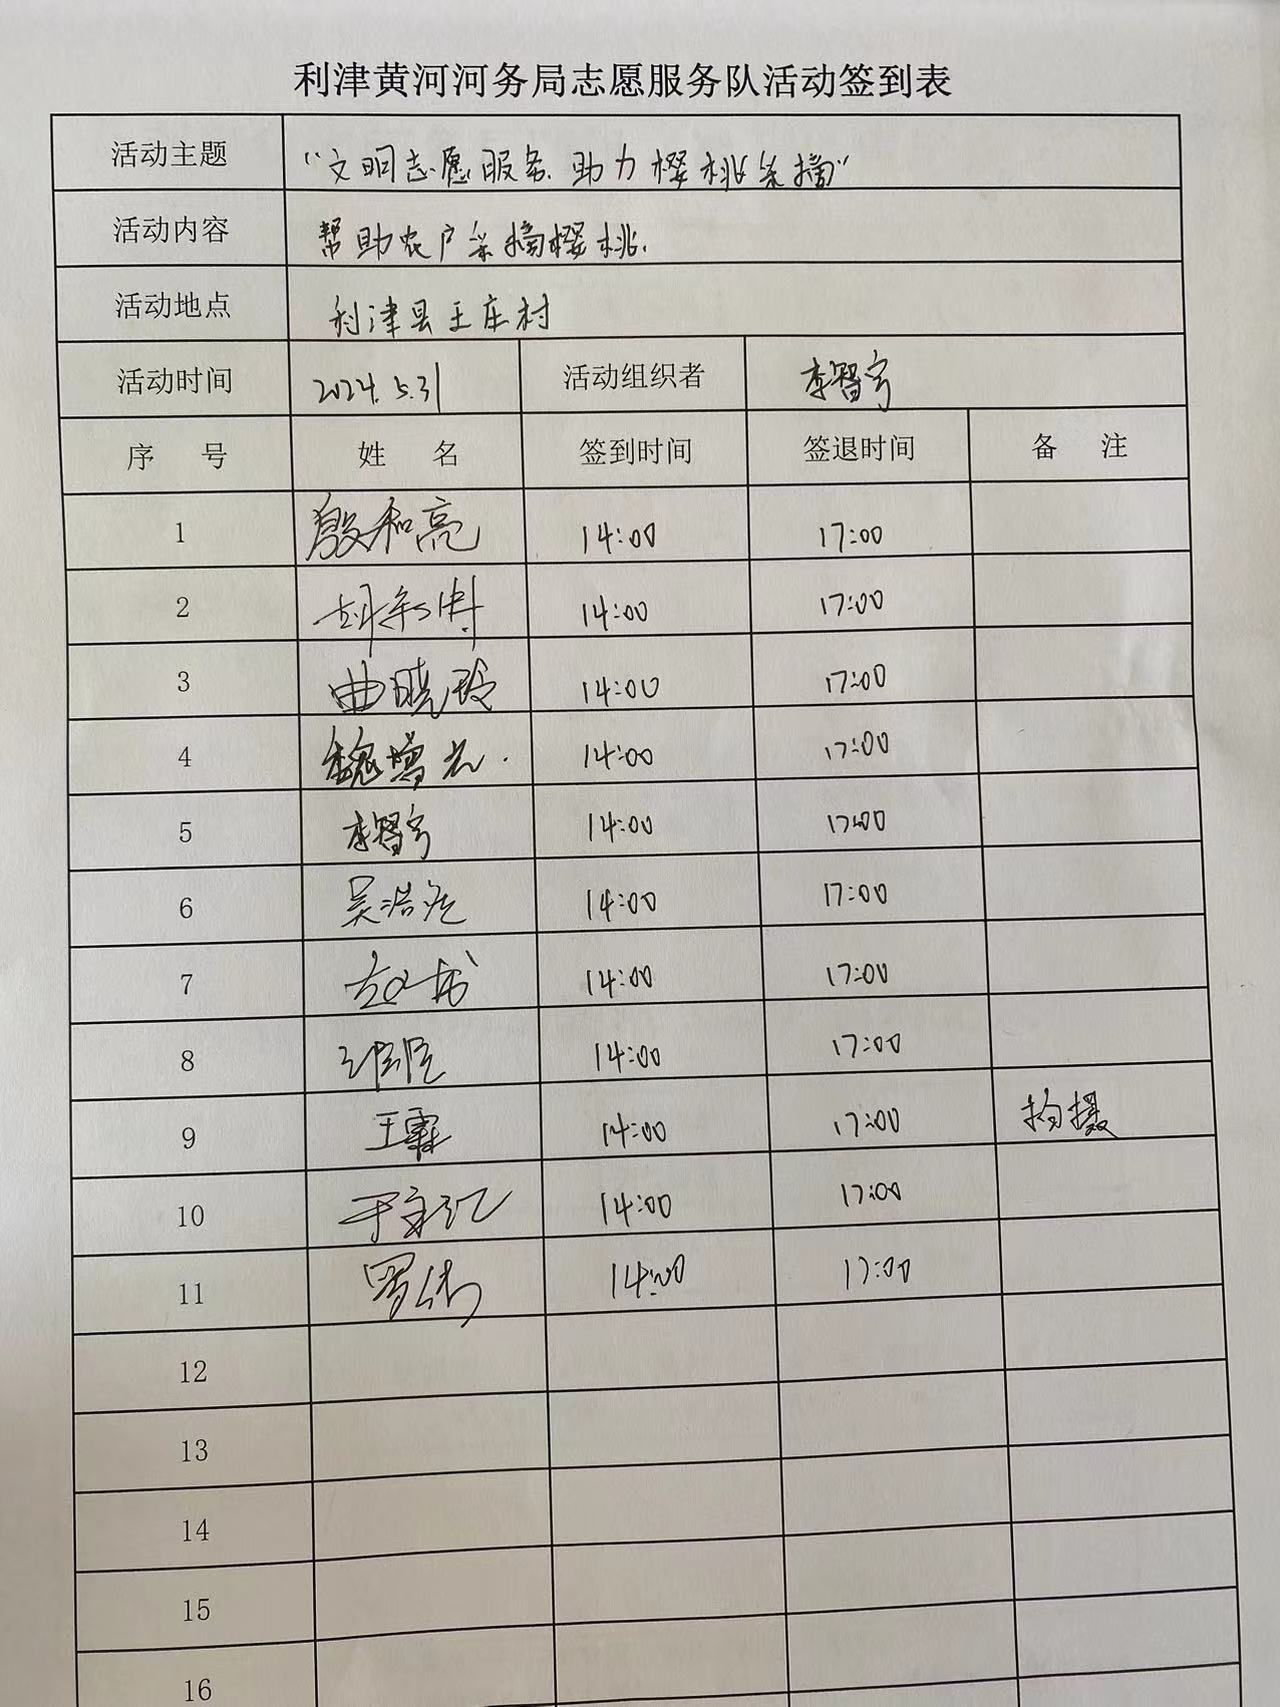 利津黄河河务局志愿服务队活动签到表
活动主题 “文明志愿服务.助力樱桃采摘”
活动内容 帮助农户采摘樱桃.
活动地点 利津县王庄村
活动时间 2024.5.31 活动组织者 李智宇
序 号 姓 名 签到时间 签退时间 备 注
1 殷和亮 14:00 17:00
2 14:00 17:00
3 曲晓玲 14:00 17:00
4 魏增光. 14:00 17:00
5 李智宇 14:00 17:00
6 吴浩 14:00 17:00
7 14:00 17:00
8 14:00 17:00
9 王霖 14:00 17:00 拍摄
10 于 14:00 17:00
11 罗伟 14:00 17:00
12
13
14
15
16